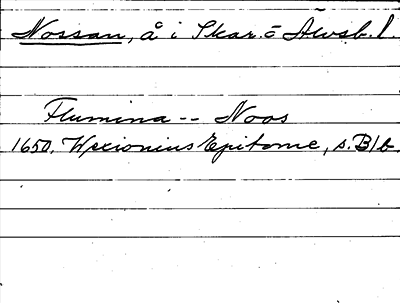 Nossan, å i Skar. o Älvsb. l.
Flumina -- Noos
1650. Wexionius Epitome, s. B1b.